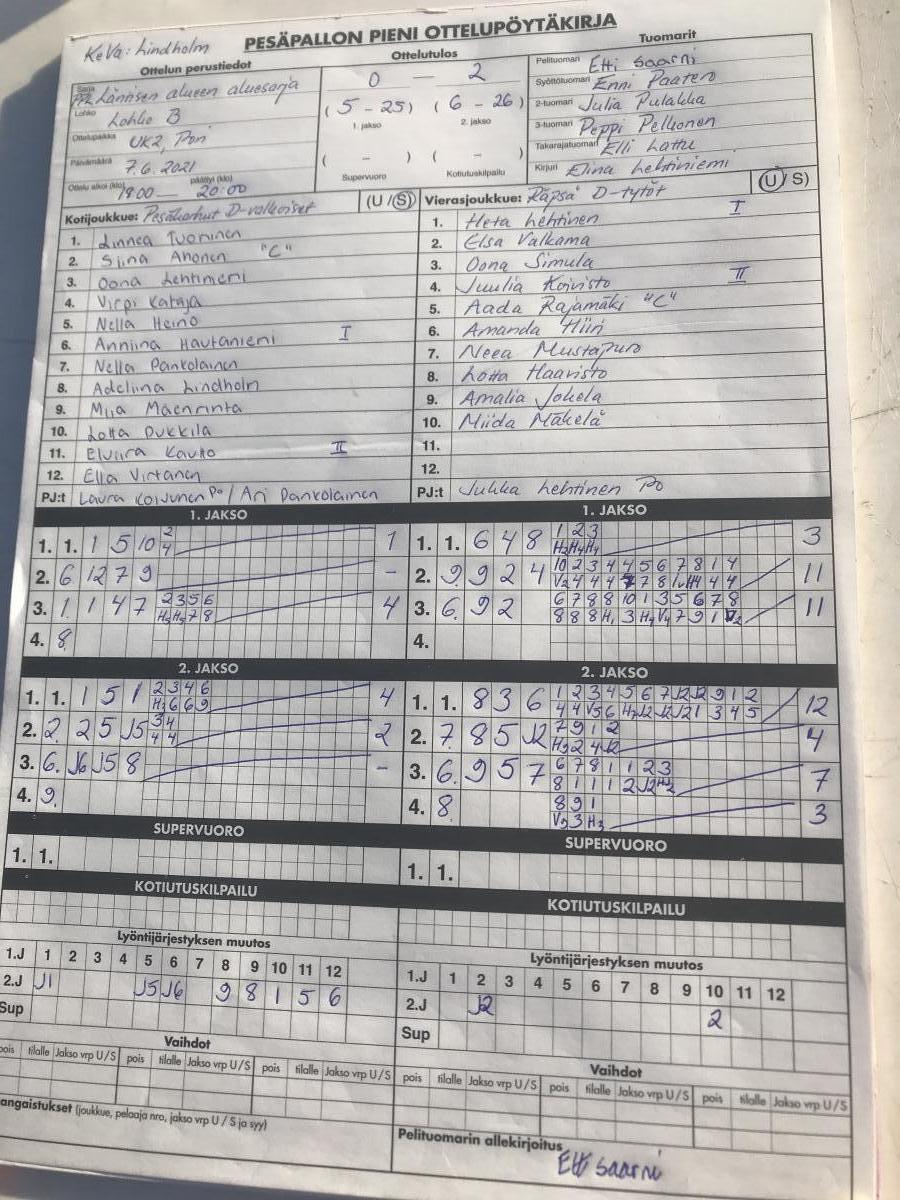 KeVa: Lindholm
PESÄPALLON PIENI OTTELUPÖYTÄKIRJA
Ottelun perustiedot
Sarja Länsisen alueen aluesarja
Lohko Lohko B
Ottelupaikka UK2, Pori
Päivämäärä 7.6.2021
Ottelu alkoi (klo) 19:00 päättyi (klo) 20:00
Ottelutulos
0 - 2
(5 - 25) (6 - 26)
1. jakso 2. jakso
( - ) ( - )
Supervuoro Kotiutuskilpailu
Tuomarit
Pelituomari Etti Saarni
Syöttötuomari Enni Paatero
2-tuomari Julia Pulakka
3-tuomari Peppi Pelkonen
Takarajatuomari Elli Lattu
Kirjuri Elina Lehtiniemi
Kotijoukkue: Pesäkarhut D-valkoiset (U / S)
1. Linnea Tuominen
2. Siina Ahonen "C"
3. Oona Lehtiniemi
4. Virpi Kataja
5. Nella Heino
6. Anniina Hautaniemi I
7. Nella Pankolainen
8. Adeliina Lindholm
9. Mija Mäenrinta
10. Lotta Pukkila
11. Elviira Kauko II
12. Ella Virtanen
PJ:t Laura Koijunen Po / Ari Pankolainen
Vierasjoukkue: Räpsä D-tytöt (U / S)
1. Heta Lehtinen I
2. Elsa Valkama
3. Oona Simula
4. Juulia Koivisto II
5. Aada Rajamäki "C"
6. Amanda Hiiri
7. Neea Mustapuro
8. Lotta Haavisto
9. Amalia Jokela
10. Miida Mäkelä
11.
12.
PJ:t Jukka Lehtinen Po
1. JAKSO
1. 1. 1 5 10 2 1
4
2. 6 12 7 9 -
3. 1. 1 4 7 2 3 5 6 4
H3 H3 7 8
4. 8.
1. JAKSO
1. 1. 6 4 8 1 2 3 3
H2 H4 H4
2. 9. 9 2 4 10 2 3 4 4 5 6 7 8 1 4 11
3. 6. 9 2 6 7 8 8 10 1 3 5 6 7 8 11
4.
2. JAKSO
1. 1. 1 5 1 2 3 4 6 4
H3 6 6 9
2. 2. 2 5 J5 3 4 2
4 4
3. 6. J6 J5 8 -
4. 9.
2. JAKSO
1. 1. 8 3 6 1 2 3 4 5 6 7 J2 J2 9 1 2 12
4 4 V5 6 H2 J2 J2 J2 1 3 4 5
2. 7. 8 5 J2 7 9 1 2 4
H9 2 4 J2
3. 6. 9 5 7 6 7 8 1 1 2 3 7
8 1 1 1 2 J2 H2
4. 8. 8 9 1 3
V9 3 H3
SUPERVUORO
1. 1.
SUPERVUORO
1. 1.
KOTIUTUSKILPAILU
KOTIUTUSKILPAILU
Lyöntijärjestyksen muutos
1.J 1 2 3 4 5 6 7 8 9 10 11 12
2.J J1 J5 J6 9 8 1 5 6
Sup
Lyöntijärjestyksen muutos
1.J 1 2 3 4 5 6 7 8 9 10 11 12
2.J J2 2
Sup
Vaihdot
pois tilalle Jakso vrp U/S pois tilalle Jakso vrp U/S pois tilalle Jakso vrp U/S
Vaihdot
pois tilalle Jakso vrp U/S pois tilalle Jakso vrp U/S pois tilalle Jakso vrp U/S
angaistukset (joukkue, pelaaja nro, jakso vrp U / S ja syy)
Pelituomarin allekirjoitus
Etti Saarni